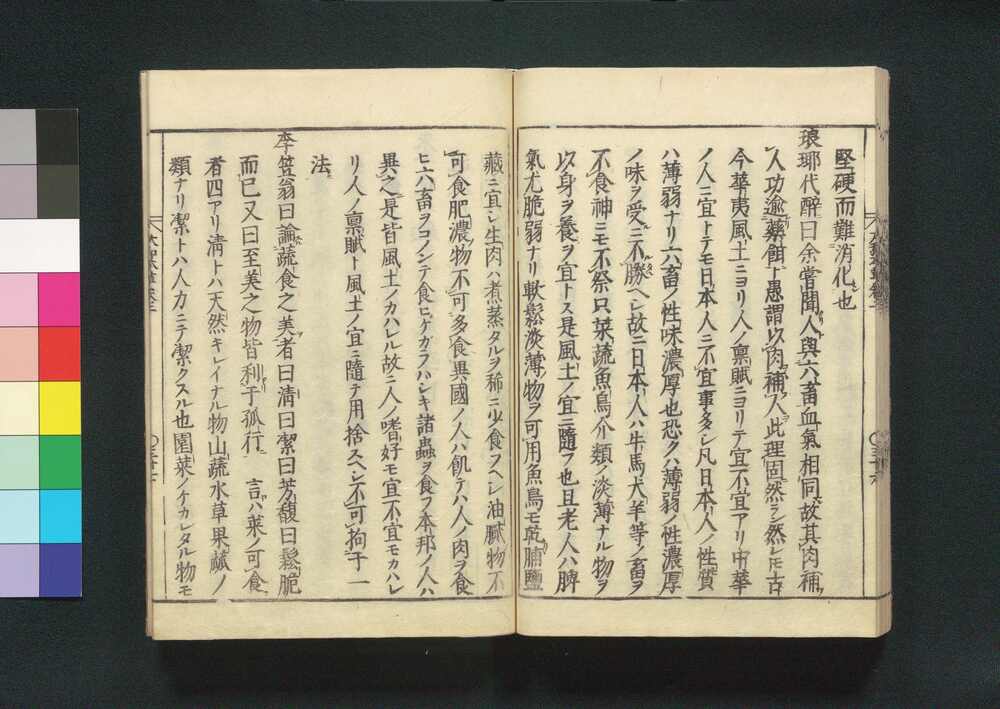 堅硬而難消化也
琅耶代醉曰余嘗聞人與六畜血氣相同故其肉補
人功逾藥餌ト愚謂以肉補人此理固然ラン然レ𪜈古
今華夷風土ニヨリ人ノ禀賦ニヨリテ宜不宜アリ中華
ノ人ニ宜トテモ日本人ニ不宜事多シ凡日本人ノ性質
ハ薄弱ナリ六畜ノ性味濃厚也恐クハ薄弱ノ性濃厚
ノ味ヲ受ニ不勝ヘシ故ニ日本人ハ牛馬犬羊等ノ畜ヲ
不食神ニモ不祭只菜蔬魚鳥介類ノ淡薄ナル物ヲ
以身ヲ養ヲ宜トス是風土ノ宜ニ隨フ也且老人ハ脾
氣尤脆弱ナリ軟鬆淡薄物ヲ可用魚鳥モ乾脯鹽
藏ニ宜シ生肉ハ煮蒸タルヲ稀ニ少食フヘシ油膩物不
可食肥濃物不可多食異國ノ人ハ飢テハ人ノ肉ヲ食
ヒ六畜ヲコノンテ食ヒケガラハシキ諸蟲ヲ食フ本邦ノ人ハ
異之是皆風土ノカハル故ニ人ノ嗜好モ宜不宜モカハレ
リ人ノ禀賦ト風土ノ宜ニ隨テ用捨スヘシ不可拘于一
法
李笠翁曰論蔬食之美者曰清曰潔曰芳馥曰鬆脆
而已又曰至美之物皆利于孤行 言ハ菜ノ可食
者四アリ清トハ天然キレイナル物山蔬水草果蓏ノ
類ナリ潔トハ人力ニテ潔クスル也園菜ノケカレタル物モ